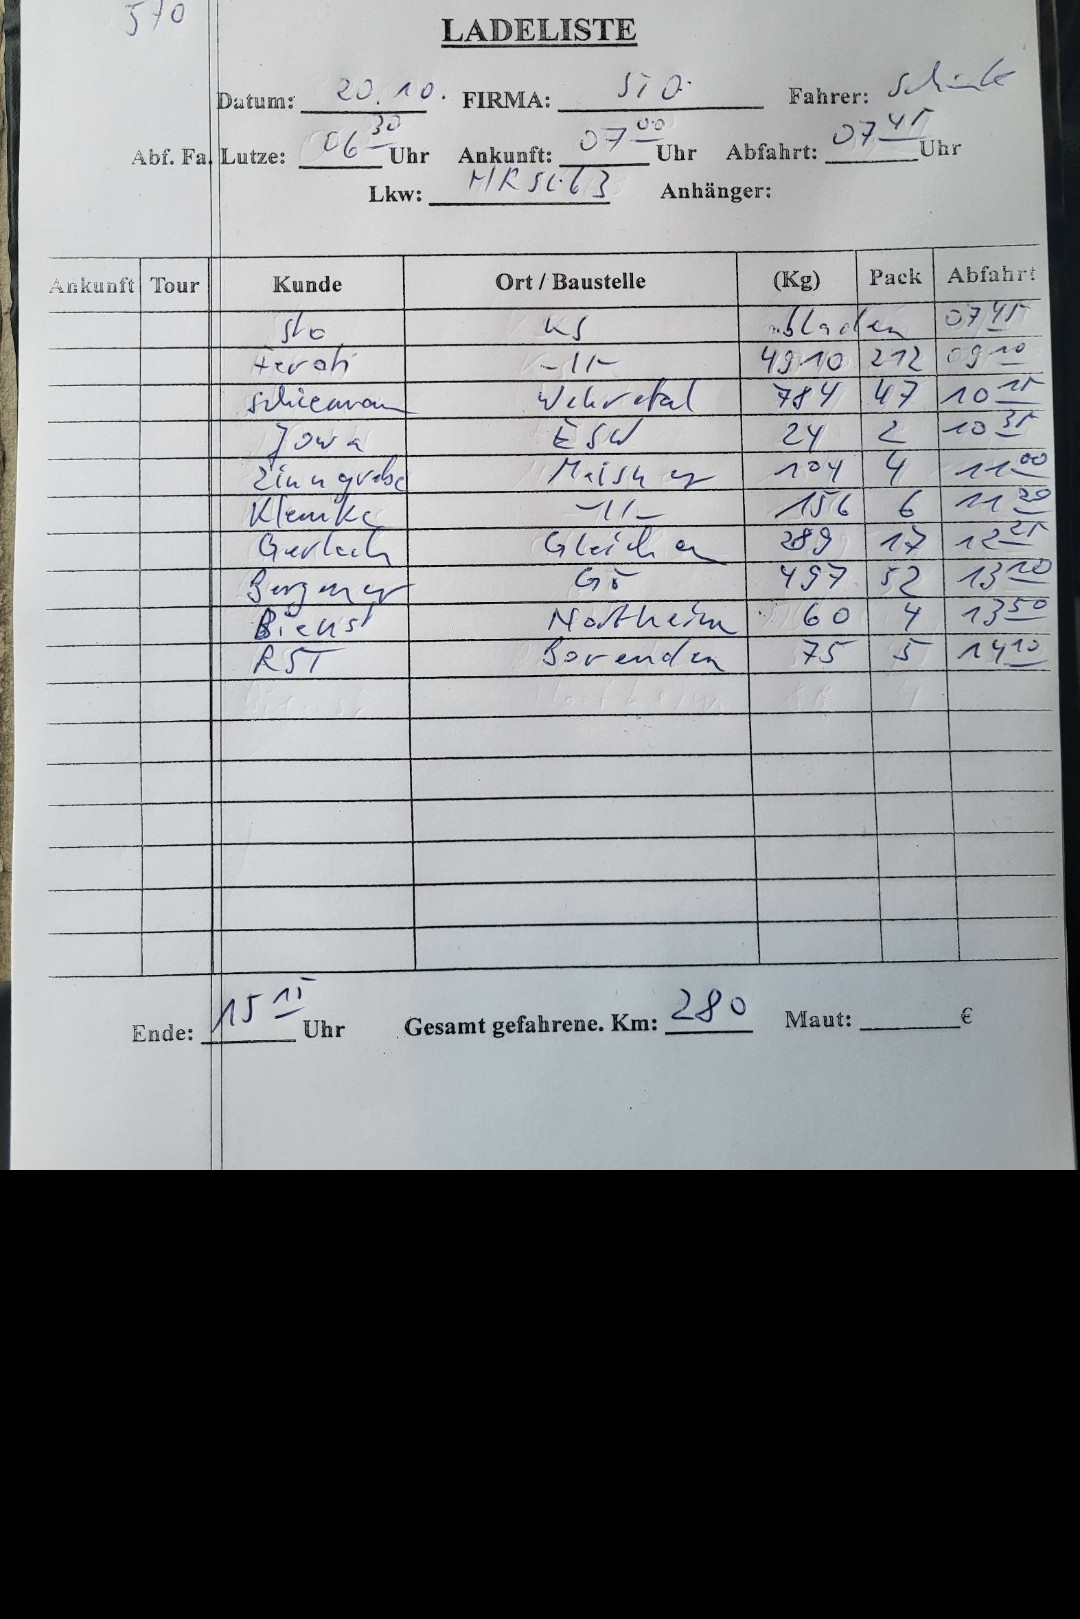 LADELISTE
Datum: 20.10. FIRMA: STO. Fahrer:
Abf. Fa. Lutze: 06 30 Uhr Ankunft: 07 00 Uhr Abfahrt: 07 45 Uhr
Lkw: Anhänger:
Ankunft Tour Kunde Ort / Baustelle (Kg) Pack Abfahrt
Sto KS abladen 07 45
-11- 4910 212 09 10
Wehretal 784 47 10 15
Jowa ESW 24 2 10 35
Zinngrebe 104 4 11 00
-11- 156 6 11 20
Gerlach Gleichen 289 17 12 25
Gö 497 52 13 10
Northeim 60 4 13 50
RST Bovenden 75 5 14 10
Ende: 15 15 Uhr Gesamt gefahrene. Km: 280 Maut: €